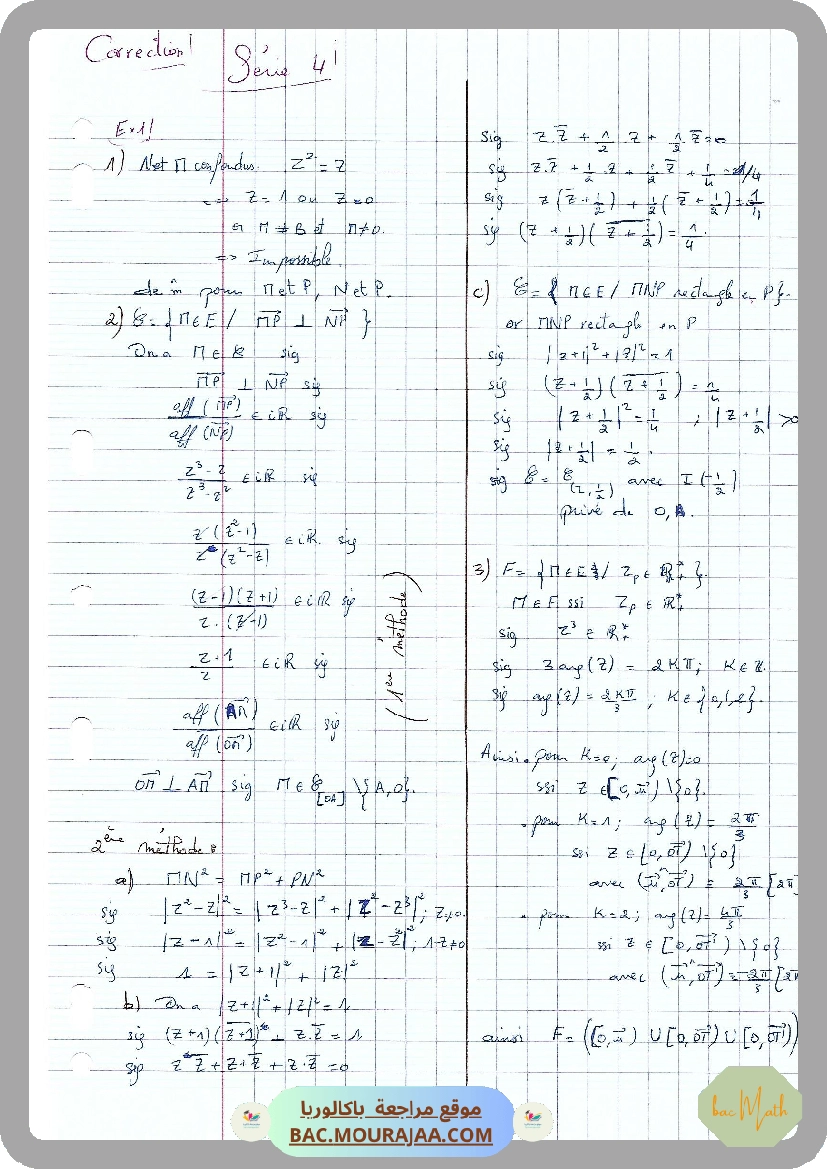 Correction!
Série 4
Ex 1!
1) N et M confondus. Z² = Z
=> Z = 1 ou Z = 0
M ≠ B et M ≠ 0.
=> Impossible.
de m pour M et P, N et P.
2) C = { M ∈ E / MP ⊥ NP }
On a M ∈ C sig
MP ⊥ NP sig
aff(MP) / aff(NP) ∈ iR sig
(Z³ - Z) / (Z³ - Z²) ∈ iR sig
Z (Z² - 1) / Z (Z² - Z) ∈ iR sig
(Z-1)(Z+1) / Z.(Z-1) ∈ iR sig
Z+1 / Z ∈ iR sig
aff(AM) / aff(OM) ∈ iR sig
(1ère méthode)
OM ⊥ AM sig M ∈ C[OA] \ {A, O}.
2ème méthode :
a) MN² = MP² + PN²
sig |Z² - Z|² = |Z³ - Z|² + |Z² - Z³|² ; Z ≠ 0
sig |Z - 1|² = |Z² - 1|² + |Z - Z²|² ; 1 - Z ≠ 0
sig 1 = |Z + 1|² + |Z|²
b) On a |Z + 1|² + |Z|² = 1
sig (Z+1)(Z̄+1) + Z.Z̄ = 1
sig Z Z̄ + Z + Z̄ + Z.Z̄ = 0
Sig Z.Z̄ + 1/2 Z + 1/2 Z̄ = 0
sig Z.Z̄ + 1/2 .Z + 1/2 Z̄ + 1/4 = 1/4
sig Z (Z̄ + 1/2) + 1/2 (Z̄ + 1/2) = 1/4
sig (Z + 1/2)(Z̄ + 1/2) = 1/4.
c) C = { M ∈ E / MNP rectangle en P }.
or MNP rectangle en P
sig |Z + 1|² + |Z|² = 1
sig (Z + 1/2)(Z̄ + 1/2) = 1/4
sig |Z + 1/2|² = 1/4 ; |Z + 1/2| > 0
sig |Z + 1/2| = 1/2.
sig C = C(I, 1/2) avec I (-1/2)
privé de O, A.
3) F = { M ∈ E / Zp ∈ R*+ }.
M ∈ F ssi Zp ∈ R*+
sig Z³ ∈ R*+
sig 3 arg(Z) = 2Kπ ; K ∈ Z.
sig arg(Z) = 2Kπ/3 ; K ∈ {0,1,2}.
Ainsi . pour K=0 ; arg(Z)=0
ssi Z ∈ [O, u) \ {0}.
. pour K=1 ; arg(Z) = 2π/3
ssi Z ∈ [O, OT) \ {0}
avec (u, OT) ≡ 2π/3 [2π
. pour K=2 ; arg(Z) = 4π/3
ssi Z ∈ [O, OT') \ {0}
avec (u, OT') ≡ -2π/3 [2π
ainsi F = ([O, u) ∪ [O, OT) ∪ [O, OT'))
موقع مراجعة باكالوريا
BAC.MOURAJAA.COM
bacMath